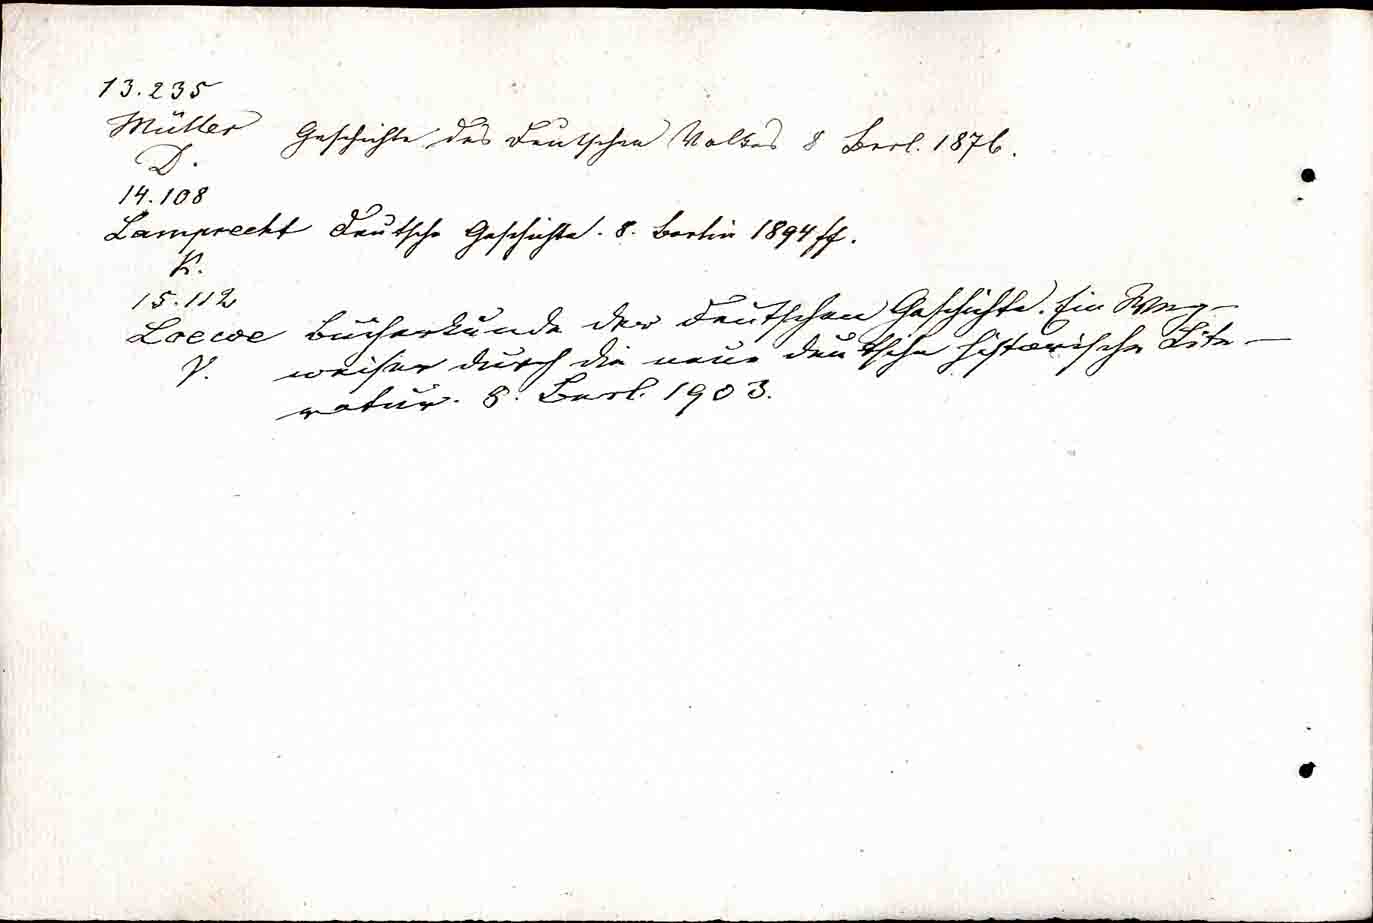 13.235
Müller Geschichte des deutschen Volkes 8 Berl. 1876.
D.
14.108
Lamprecht Deutsche Geschichte. 8. Berlin 1894 ff.
K.
15.112
Loewe Bücherkunde der deutschen Geschichte. Ein Weg-
V. weiser durch die neue deutsche historische Lite-
ratur. 8. Berl. 1903.